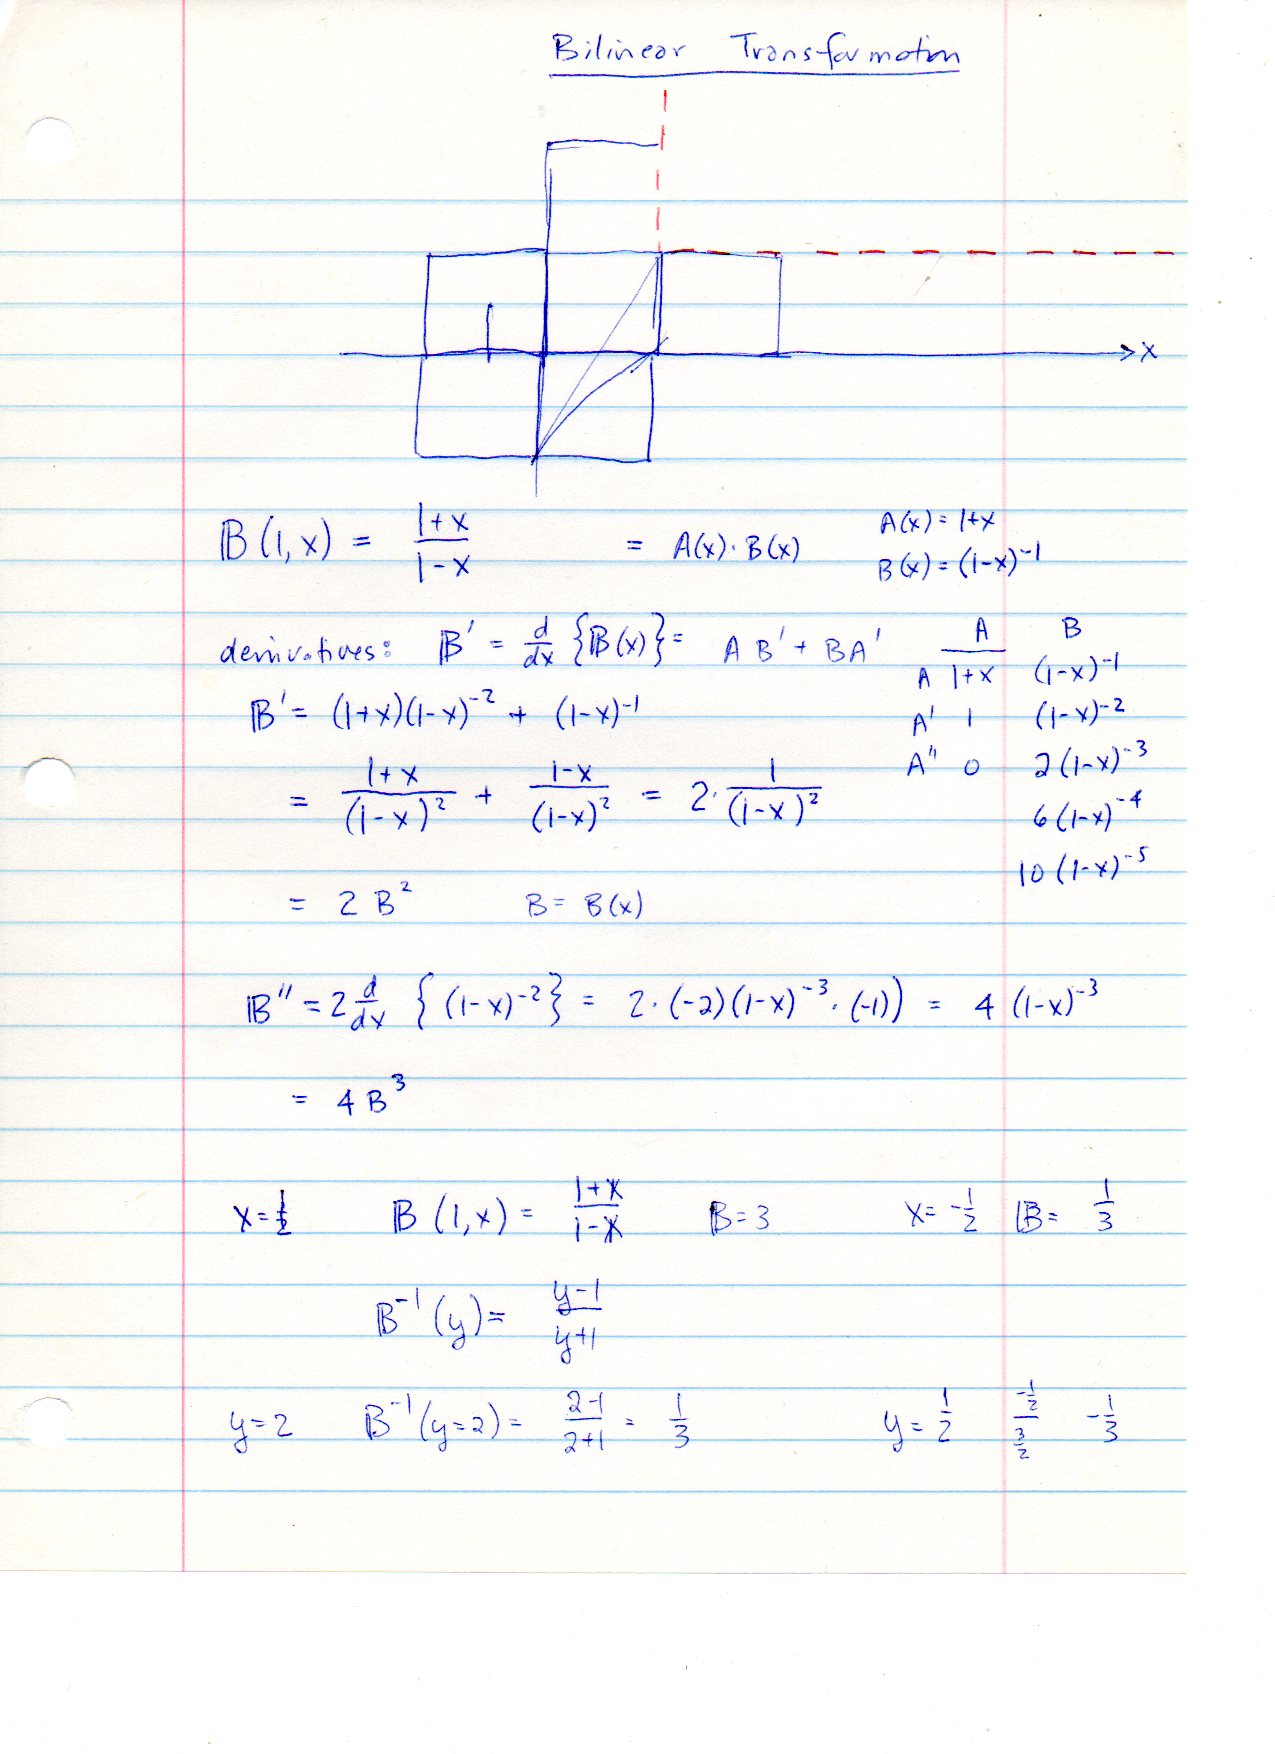 Bilinear Transformation
x
𝔹(1,x) = (1+x)/(1-x) = A(x)·B(x)
A(x) = 1+x
B(x) = (1-x)^-1
derivatives: 𝔹' = d/dx {𝔹(x)} = AB' + BA'
A B
A 1+x (1-x)^-1
A' 1 (1-x)^-2
A'' 0 2(1-x)^-3
6(1-x)^-4
10(1-x)^-5
𝔹' = (1+x)(1-x)^-2 + (1-x)^-1
= (1+x)/(1-x)^2 + (1-x)/(1-x)^2 = 2· 1/(1-x)^2
= 2B^2 B = B(x)
𝔹'' = 2 d/dx {(1-x)^-2} = 2·(-2)(1-x)^-3·(-1)) = 4(1-x)^-3
= 4B^3
x = 1/2 𝔹(1,x) = (1+x)/(1-x) 𝔹 = 3 x = -1/2 𝔹 = 1/3
𝔹^-1(y) = (y-1)/(y+1)
y = 2 𝔹^-1(y=2) = (2-1)/(2+1) = 1/3 y = 1/2 (-1/2)/(3/2) -1/3